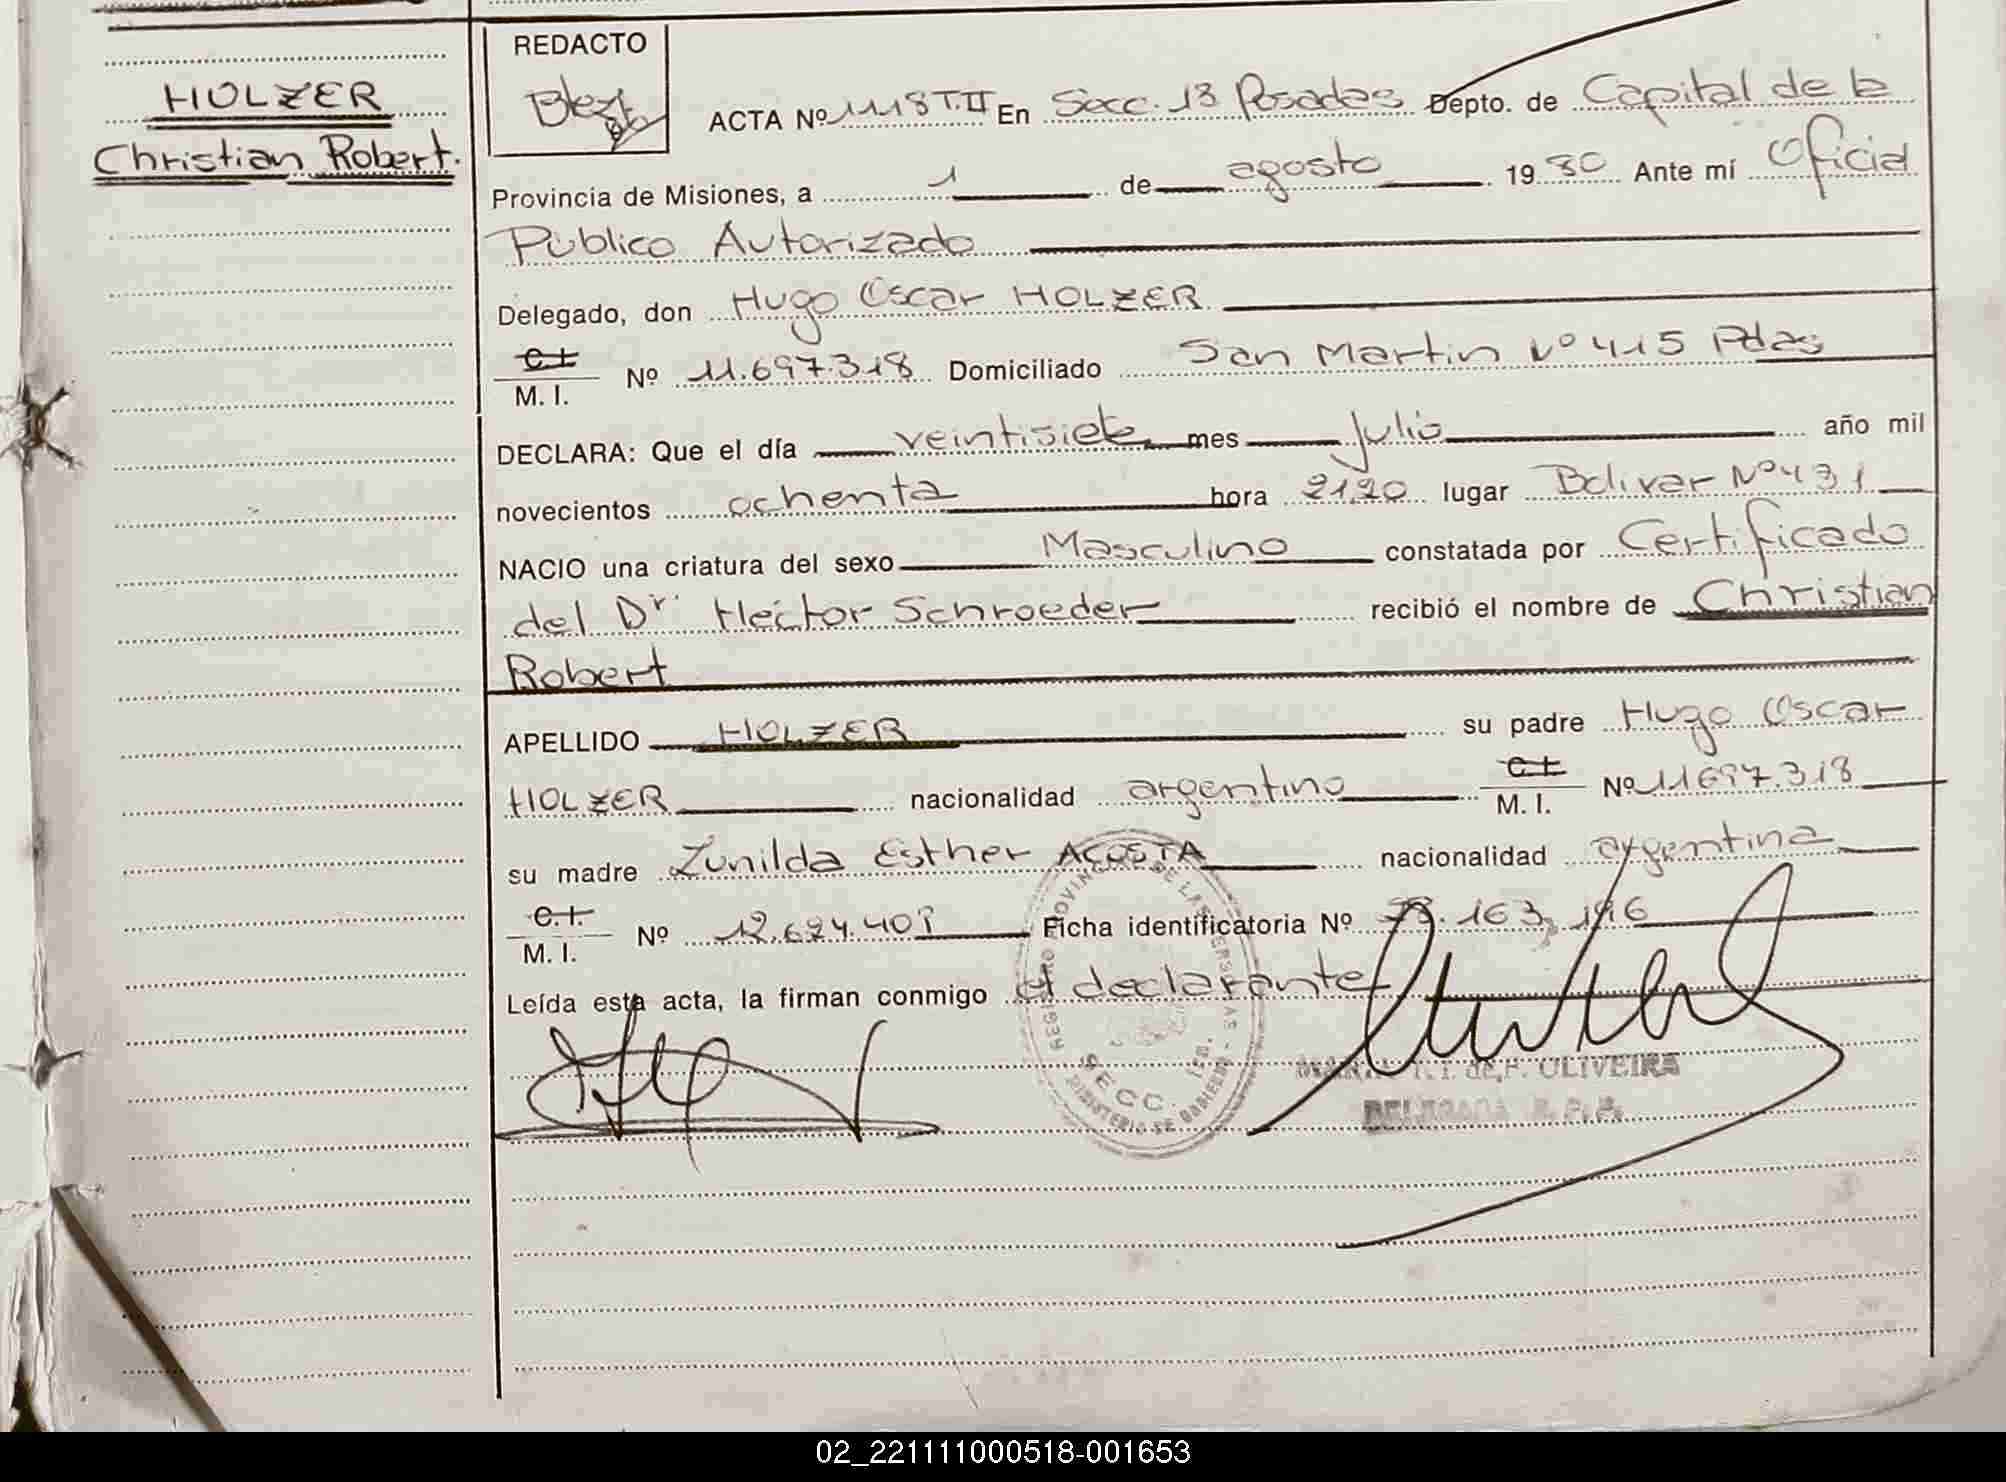 HOLZER
Christian Robert.
REDACTO
ACTA Nº 1118 T.II En Secc. 13 Posadas Depto. de Capital de la
Provincia de Misiones, a 1 de agosto 1980 Ante mí Oficial
Público Autorizado
Delegado, don Hugo Oscar HOLZER
C.I. M. I. Nº 11.697.318 Domiciliado San Martin Nº 415 Pdas
DECLARA: Que el día veintisiete mes Julio año mil
novecientos ochenta hora 21,20 lugar Bolivar Nº 431
NACIO una criatura del sexo Masculino constatada por Certificado
del Dr. Hector Schroeder recibió el nombre de Christian
Robert
APELLIDO HOLZER su padre Hugo Oscar
HOLZER nacionalidad argentino C.I. M. I. Nº 11697.318
su madre Zunilda Esther ACOSTA nacionalidad argentina
C.I. M. I. Nº Ficha identificatoria Nº
Leída esta acta, la firman conmigo el declarante
REGISTRO PROVINCIAL DE LAS PERSONAS
SECC.
MINISTERIO DE GOBIERNO
OLIVEIRA
DELEGADA R. P. P.
02_221111000518-001653